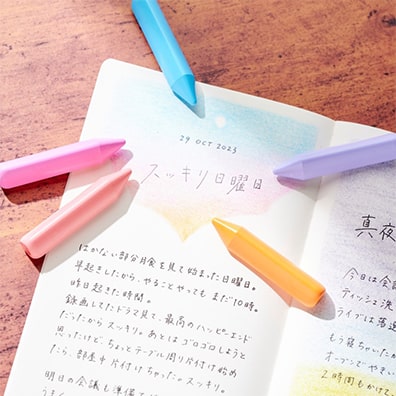 29 OCT 2023
スッキリ日曜日
はかない部分月食を見て始まった日曜日。
早起きしたから、やることやってもまだ10時。
昨日起きた時間。
録画してたドラマ見て、最高のハッピーエンド
だったからスッキリ。あとはゴロゴロしようと
思ったけど、ちょっとテーブル周り片付け始め
たら、部屋中片付けちゃった。スッキリ。
明日の会議も準備
真夜
今日は会議
ティッシュ洗
ライブは落選
もう寝ちゃいたか
オーブンでやきい
2時間もかけて